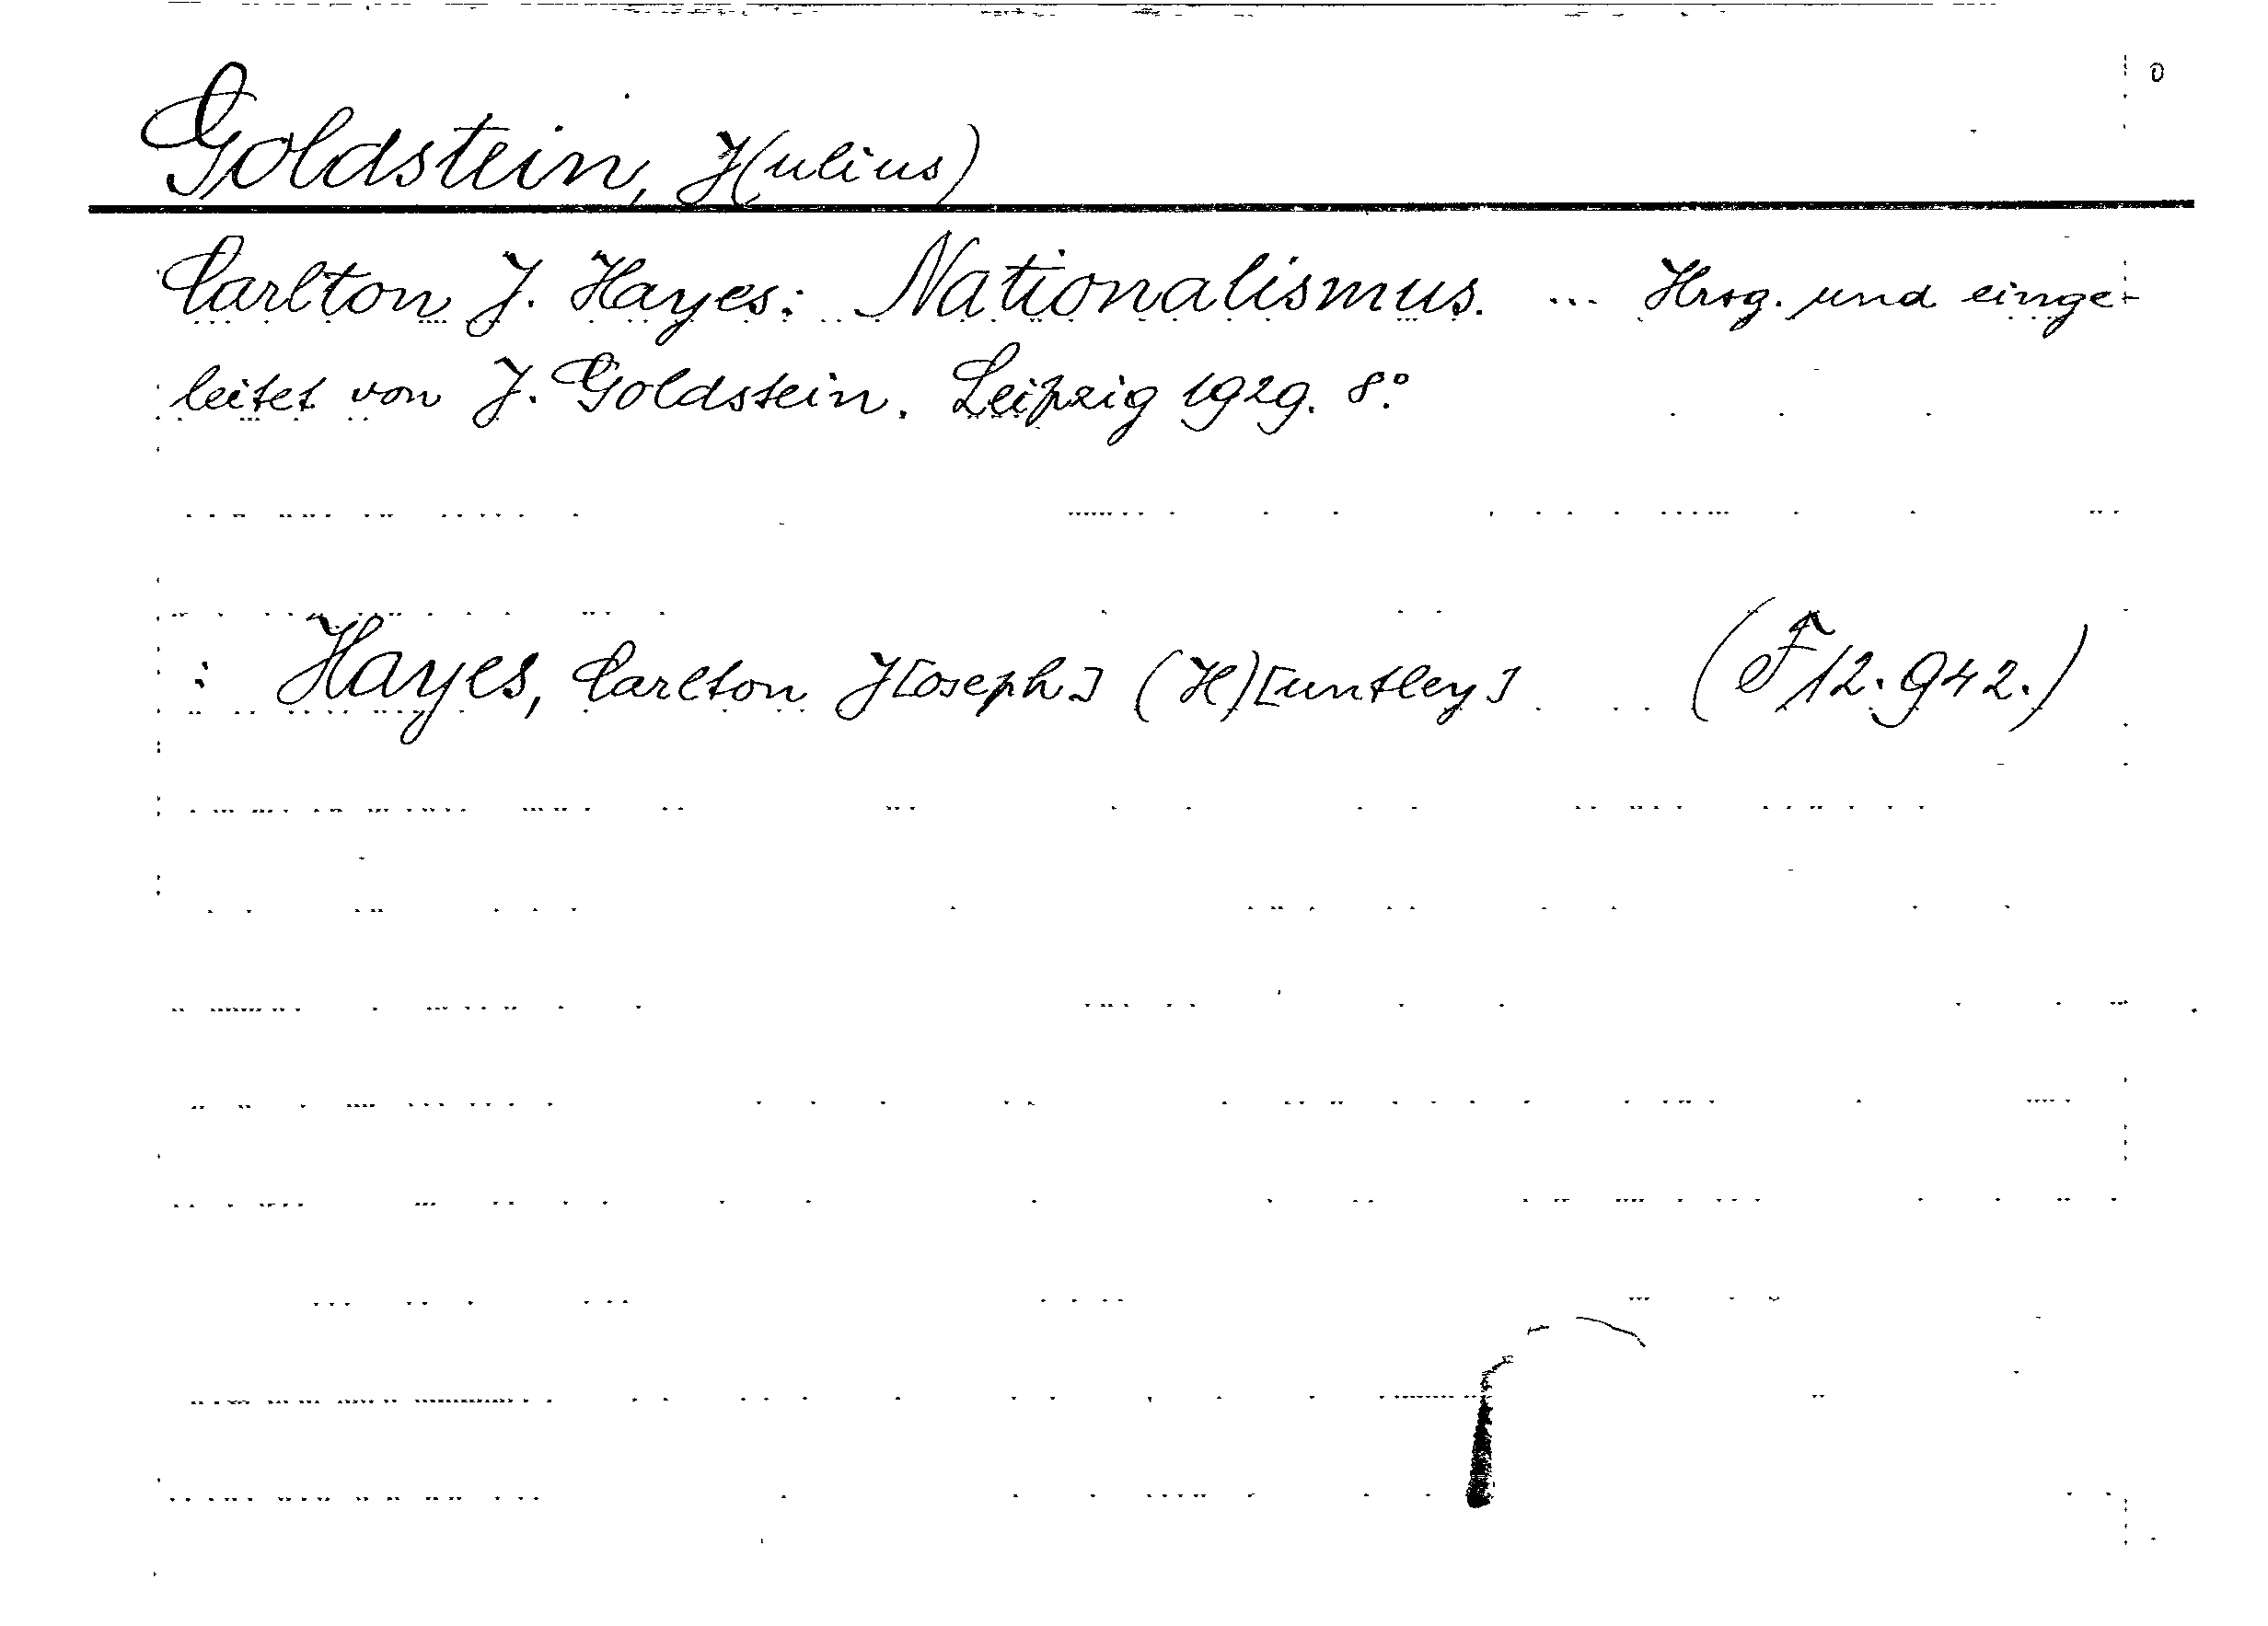 Goldstein, J(ulius)
Carlton J. Hayes: Nationalismus. ... Hrsg. und einge-
leitet von J. Goldstein. Leipzig 1929. 8.°
: Hayes, Carlton J[oseph] (H)[untley] (F 12.942.)